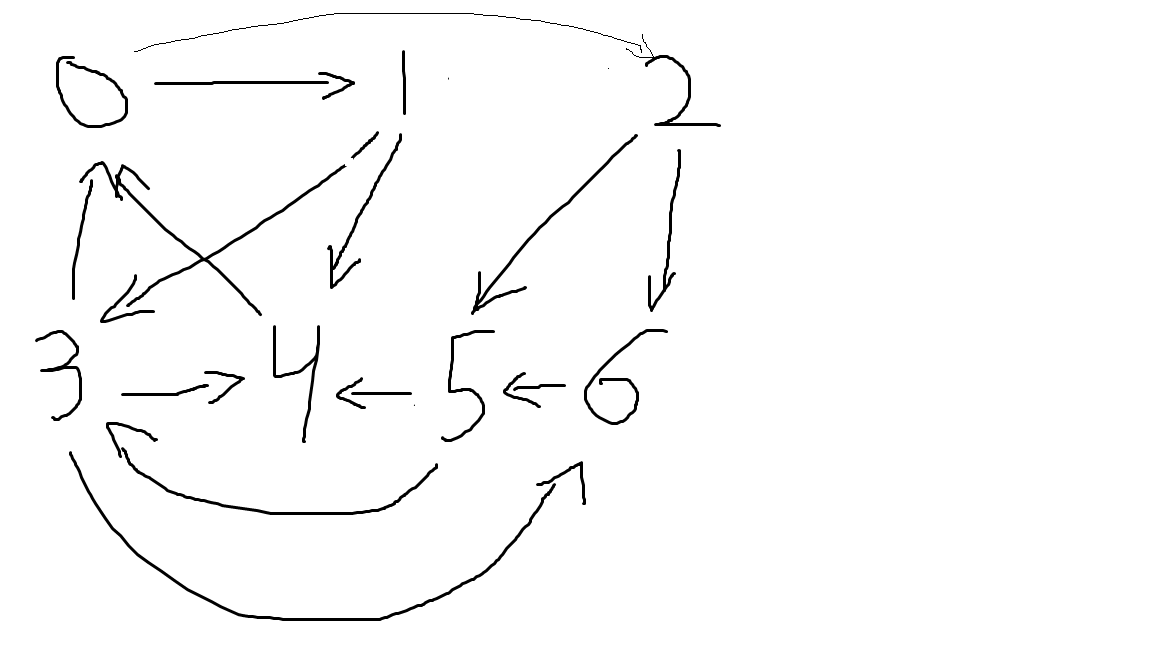 0 1 2
3 4 5 6